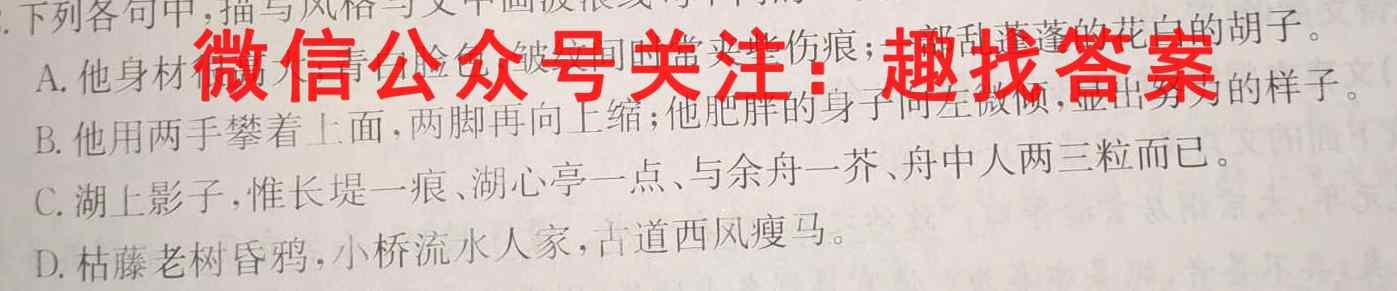 下列各句中,描写风格与文中画波浪线
微信公众号关注:趣找答案
A.他身材 脸色,皱纹间时常夹些伤痕; 部乱蓬蓬的花白的胡子。
B.他用两手攀着上面,两脚再向上缩;他肥胖的身子向左微倾,显出努力的样子。
C.湖上影子,惟长堤一痕、湖心亭一点、与余舟一芥、舟中人两三粒而已。
D.枯藤老树昏鸦,小桥流水人家,古道西风瘦马。